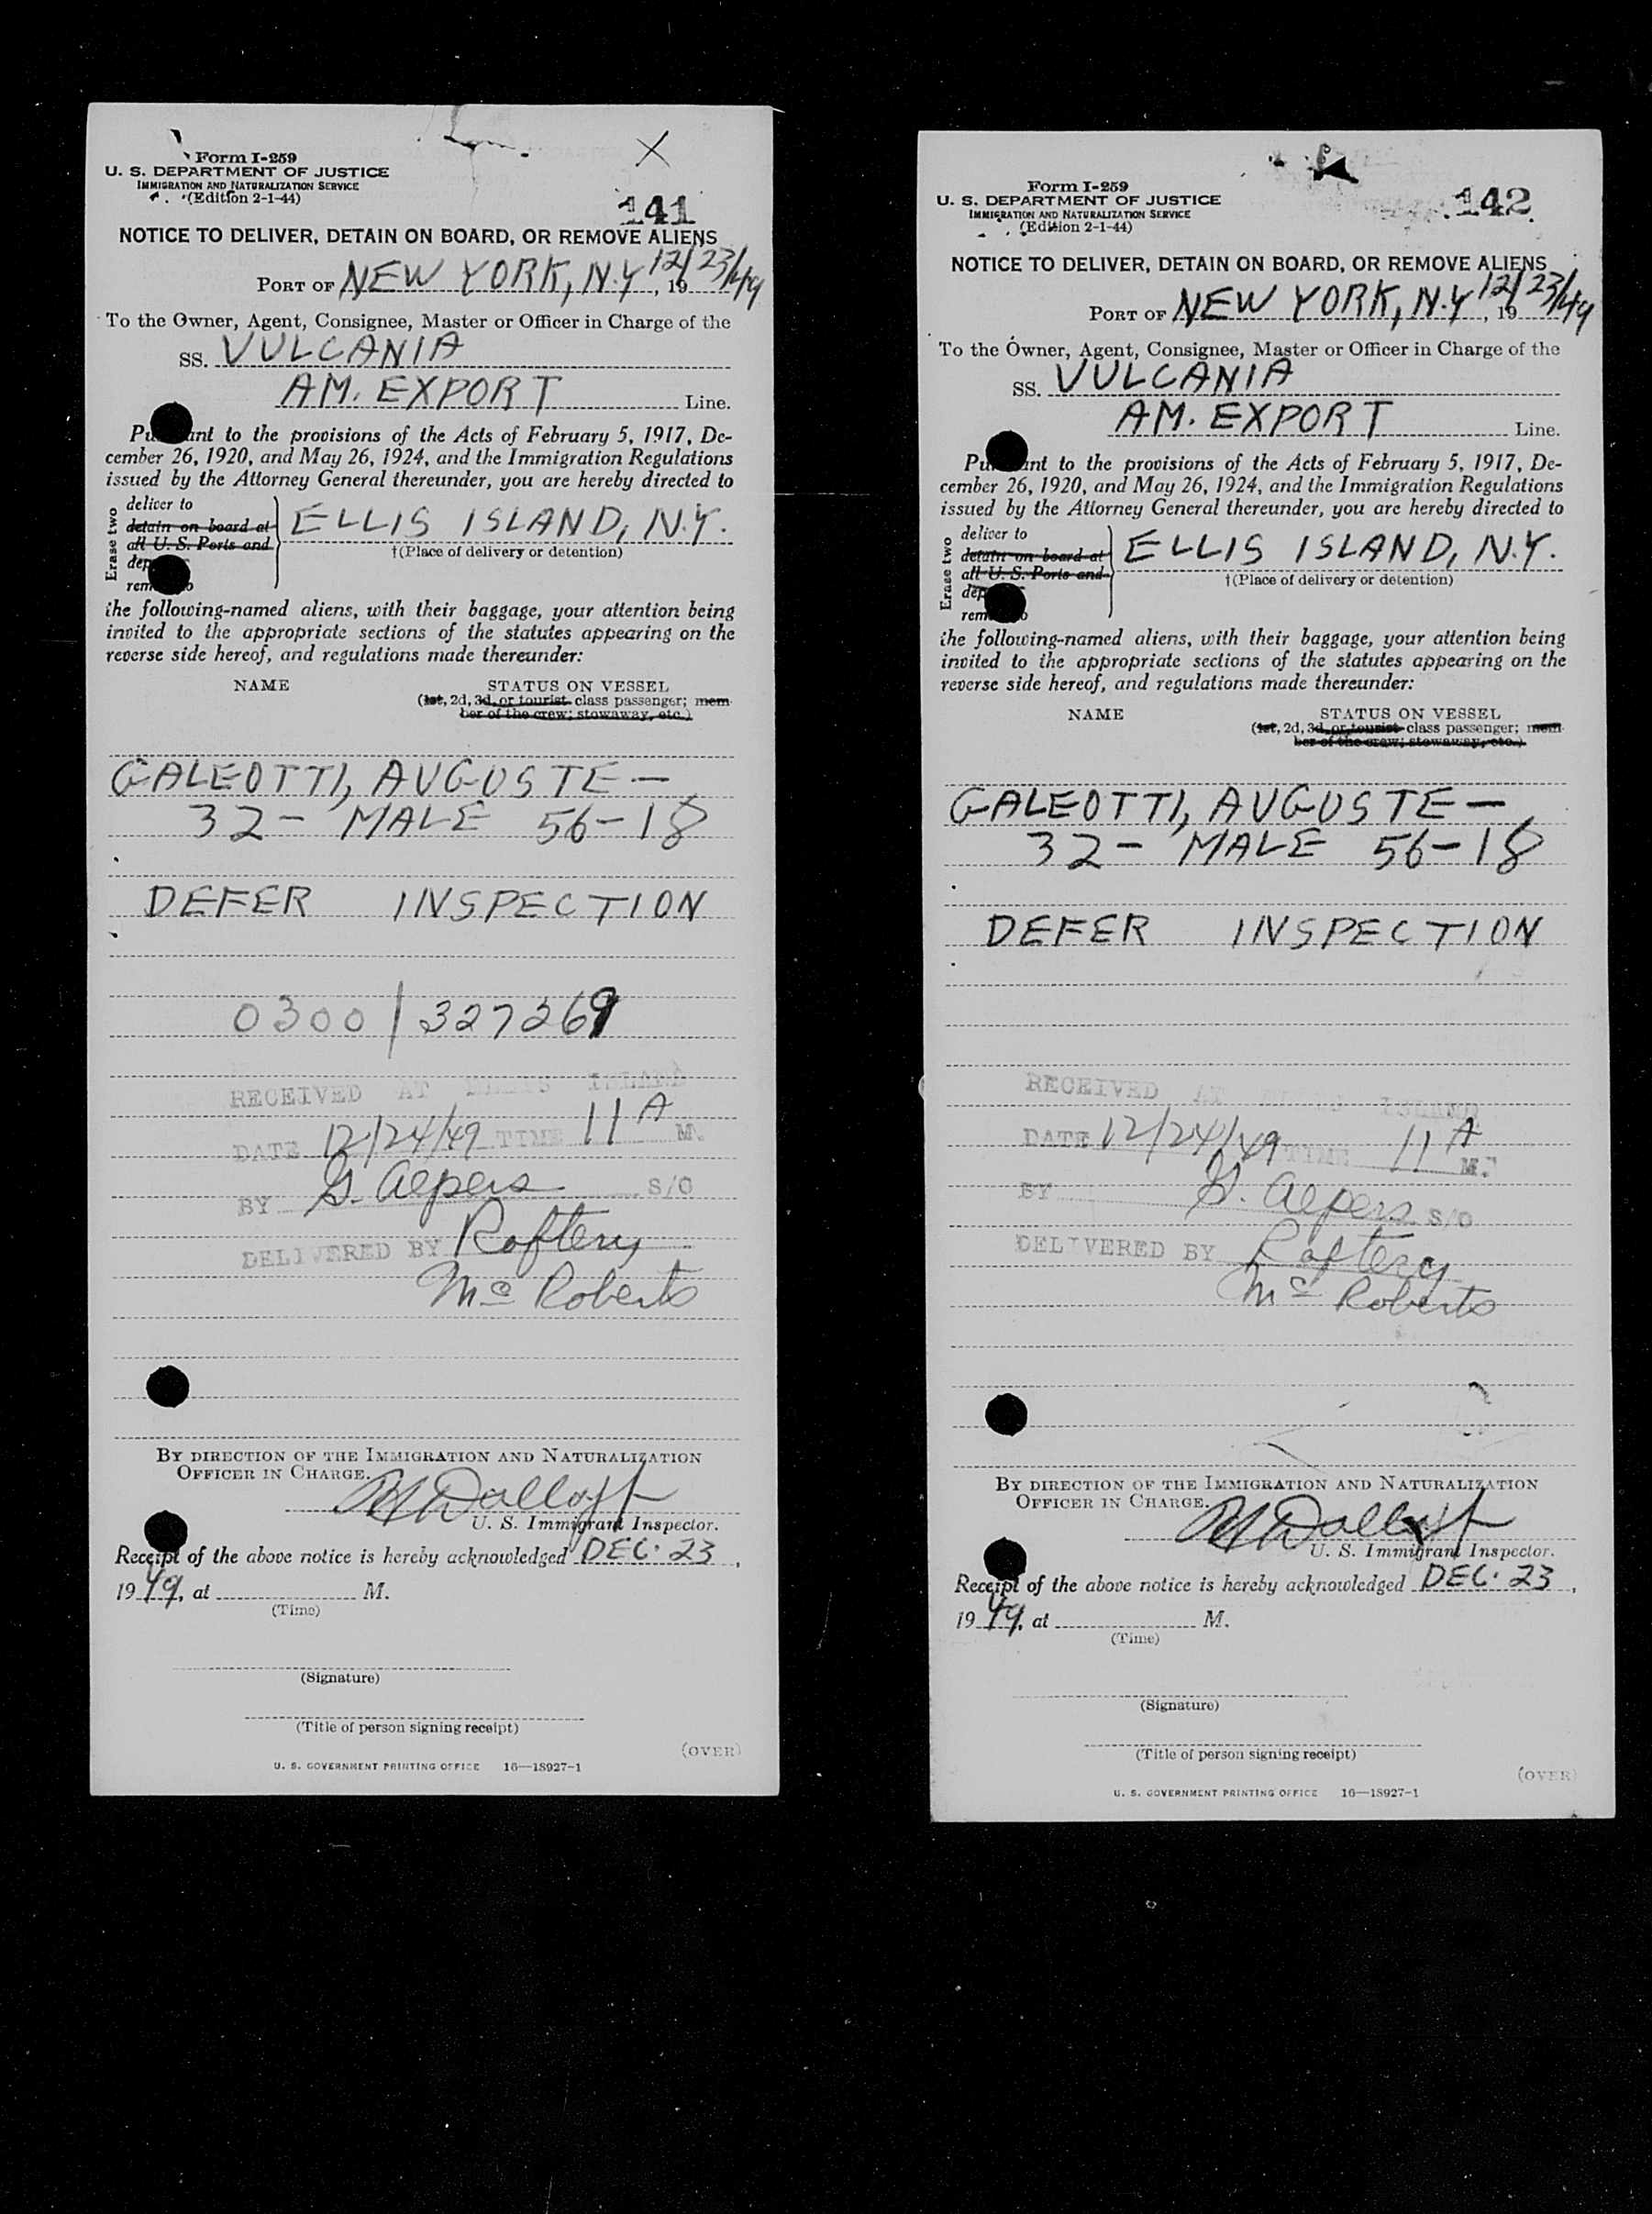 Form I-259
U. S. DEPARTMENT OF JUSTICE
IMMIGRATION AND NATURALIZATION SERVICE
(Edition 2-1-44)
X
141
NOTICE TO DELIVER, DETAIN ON BOARD, OR REMOVE ALIENS
PORT OF NEW YORK, N.Y 12/23/49, 19
To the Owner, Agent, Consignee, Master or Officer in Charge of the
SS. VULCANIA
AM. EXPORT Line.
Pursuant to the provisions of the Acts of February 5, 1917, De-
cember 26, 1920, and May 26, 1924, and the Immigration Regulations
issued by the Attorney General thereunder, you are hereby directed to
Erase two
deliver to
detain on board at
all U. S. Ports and
dep
rem
ELLIS ISLAND, N.Y.
†(Place of delivery or detention)
the following-named aliens, with their baggage, your attention being
invited to the appropriate sections of the statutes appearing on the
reverse side hereof, and regulations made thereunder:
NAME STATUS ON VESSEL
(1st, 2d, 3d, or tourist class passenger; mem-
ber of the crew; stowaway, etc.)
GALEOTTI, AUGUSTE —
32 - MALE 56-18
DEFER INSPECTION
0300 / 327269
RECEIVED AT ELLIS ISLAND
DATE 12/24/49 TIME 11 A M.
BY G. Alpers S/O
DELIVERED BY Raftery
McRoberts
BY DIRECTION OF THE IMMIGRATION AND NATURALIZATION
OFFICER IN CHARGE.
U. S. Immigrant Inspector.
Receipt of the above notice is hereby acknowledged DEC. 23,
19 49, at M.
(Time)
(Signature)
(Title of person signing receipt)
(OVER)
U. S. GOVERNMENT PRINTING OFFICE 16—18927-1
Form I-259
U. S. DEPARTMENT OF JUSTICE
IMMIGRATION AND NATURALIZATION SERVICE
(Edition 2-1-44)
142
NOTICE TO DELIVER, DETAIN ON BOARD, OR REMOVE ALIENS
PORT OF NEW YORK, N.Y 12/23/49, 19
To the Owner, Agent, Consignee, Master or Officer in Charge of the
SS. VULCANIA
AM. EXPORT Line.
Pursuant to the provisions of the Acts of February 5, 1917, De-
cember 26, 1920, and May 26, 1924, and the Immigration Regulations
issued by the Attorney General thereunder, you are hereby directed to
Erase two
deliver to
detain on board at
all U. S. Ports and
dep
rem
ELLIS ISLAND, N.Y.
†(Place of delivery or detention)
the following-named aliens, with their baggage, your attention being
invited to the appropriate sections of the statutes appearing on the
reverse side hereof, and regulations made thereunder:
NAME STATUS ON VESSEL
(1st, 2d, 3d, or tourist class passenger; mem-
ber of the crew; stowaway, etc.)
GALEOTTI, AUGUSTE —
32 - MALE 56-18
DEFER INSPECTION
RECEIVED AT ELLIS ISLAND
DATE 12/24/49 TIME 11 A M.
BY G. Alpers S/O
DELIVERED BY Raftery
McRoberts
BY DIRECTION OF THE IMMIGRATION AND NATURALIZATION
OFFICER IN CHARGE.
U. S. Immigrant Inspector.
Receipt of the above notice is hereby acknowledged DEC. 23,
19 49, at M.
(Time)
(Signature)
(Title of person signing receipt)
(OVER)
U. S. GOVERNMENT PRINTING OFFICE 16—18927-1